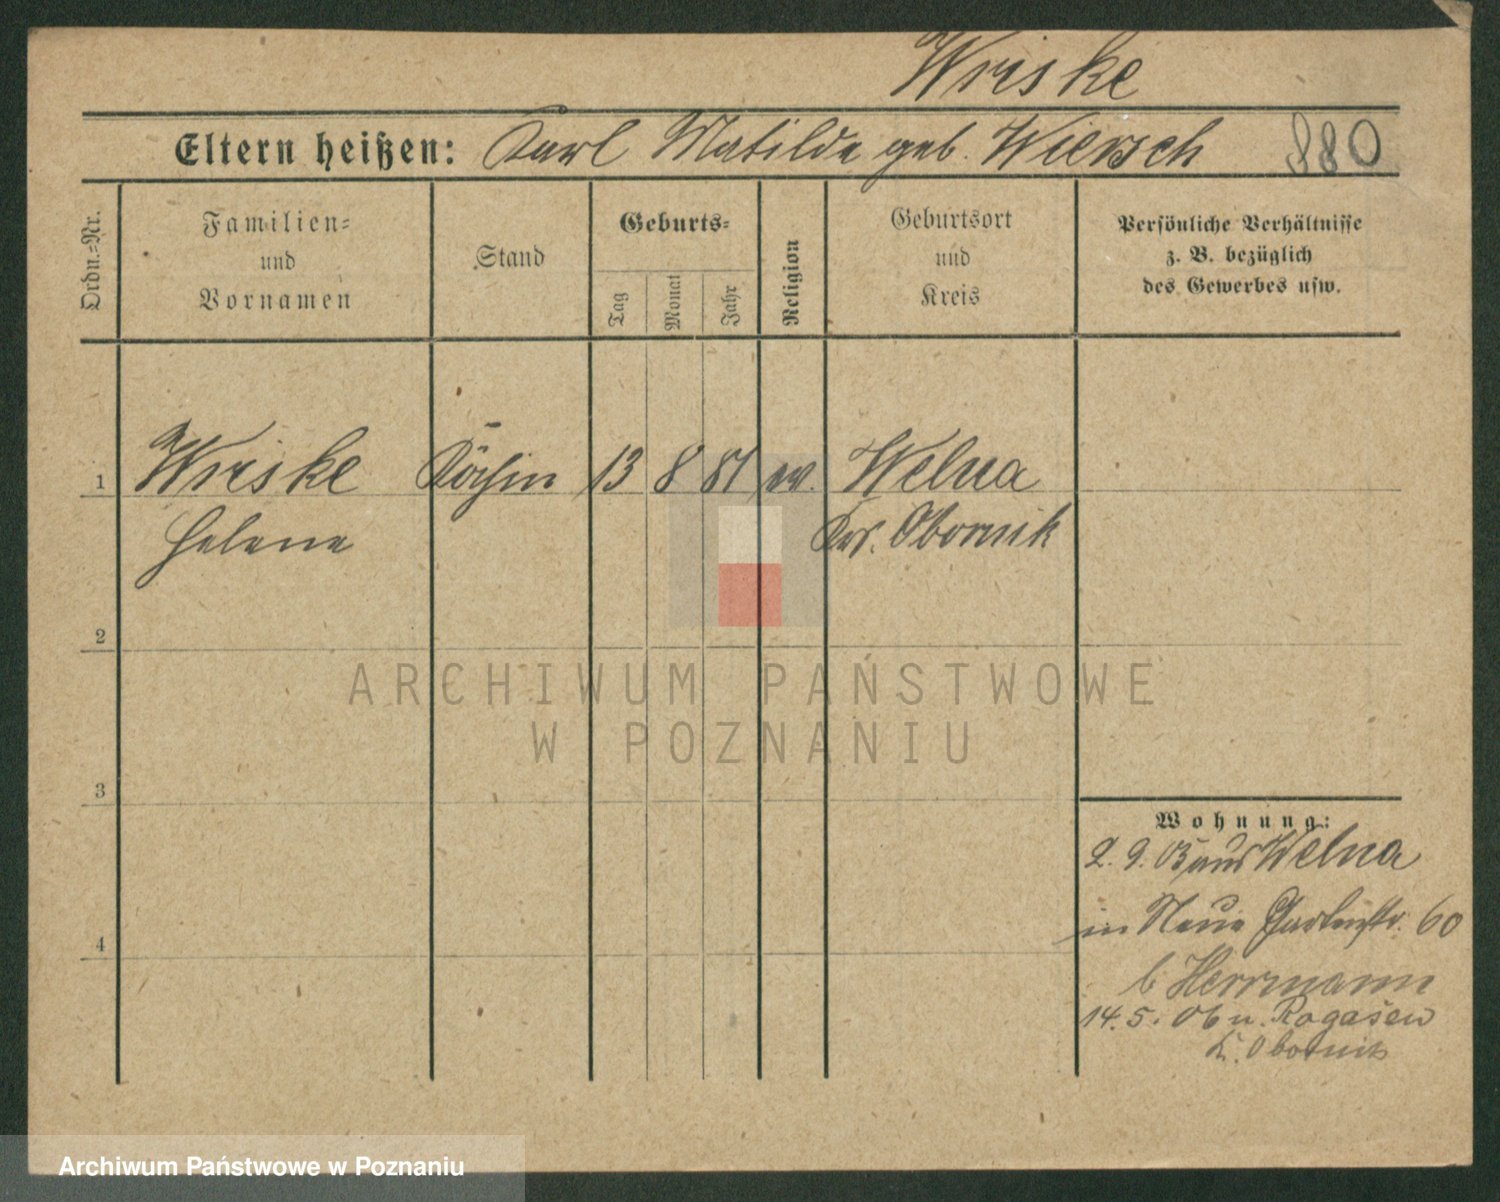 Wriske
Eltern heißen: Karl Matilde geb. Wiersch 880
Ordn.=Nr.
Familien=
und
Vornamen
Stand
Geburts=
Tag
Monat
Jahr
Religion
Geburtsort
und
Kreis
Persönliche Verhältnisse
z. B. bezüglich
des Gewerbes usw.
1 Wriske Köchin 13 8 81 ev. Welna
Helene Krs. Obornik
2
ARCHIWUM PAŃSTWOWE
W POZNANIU
3
Wohnung:
2. 9. 05 aus Welna
4
in Neue Gartenstr. 60
b Herrmann
14. 5. 06 n. Rogasen
K. Obornik
Archiwum Państwowe w Poznaniu